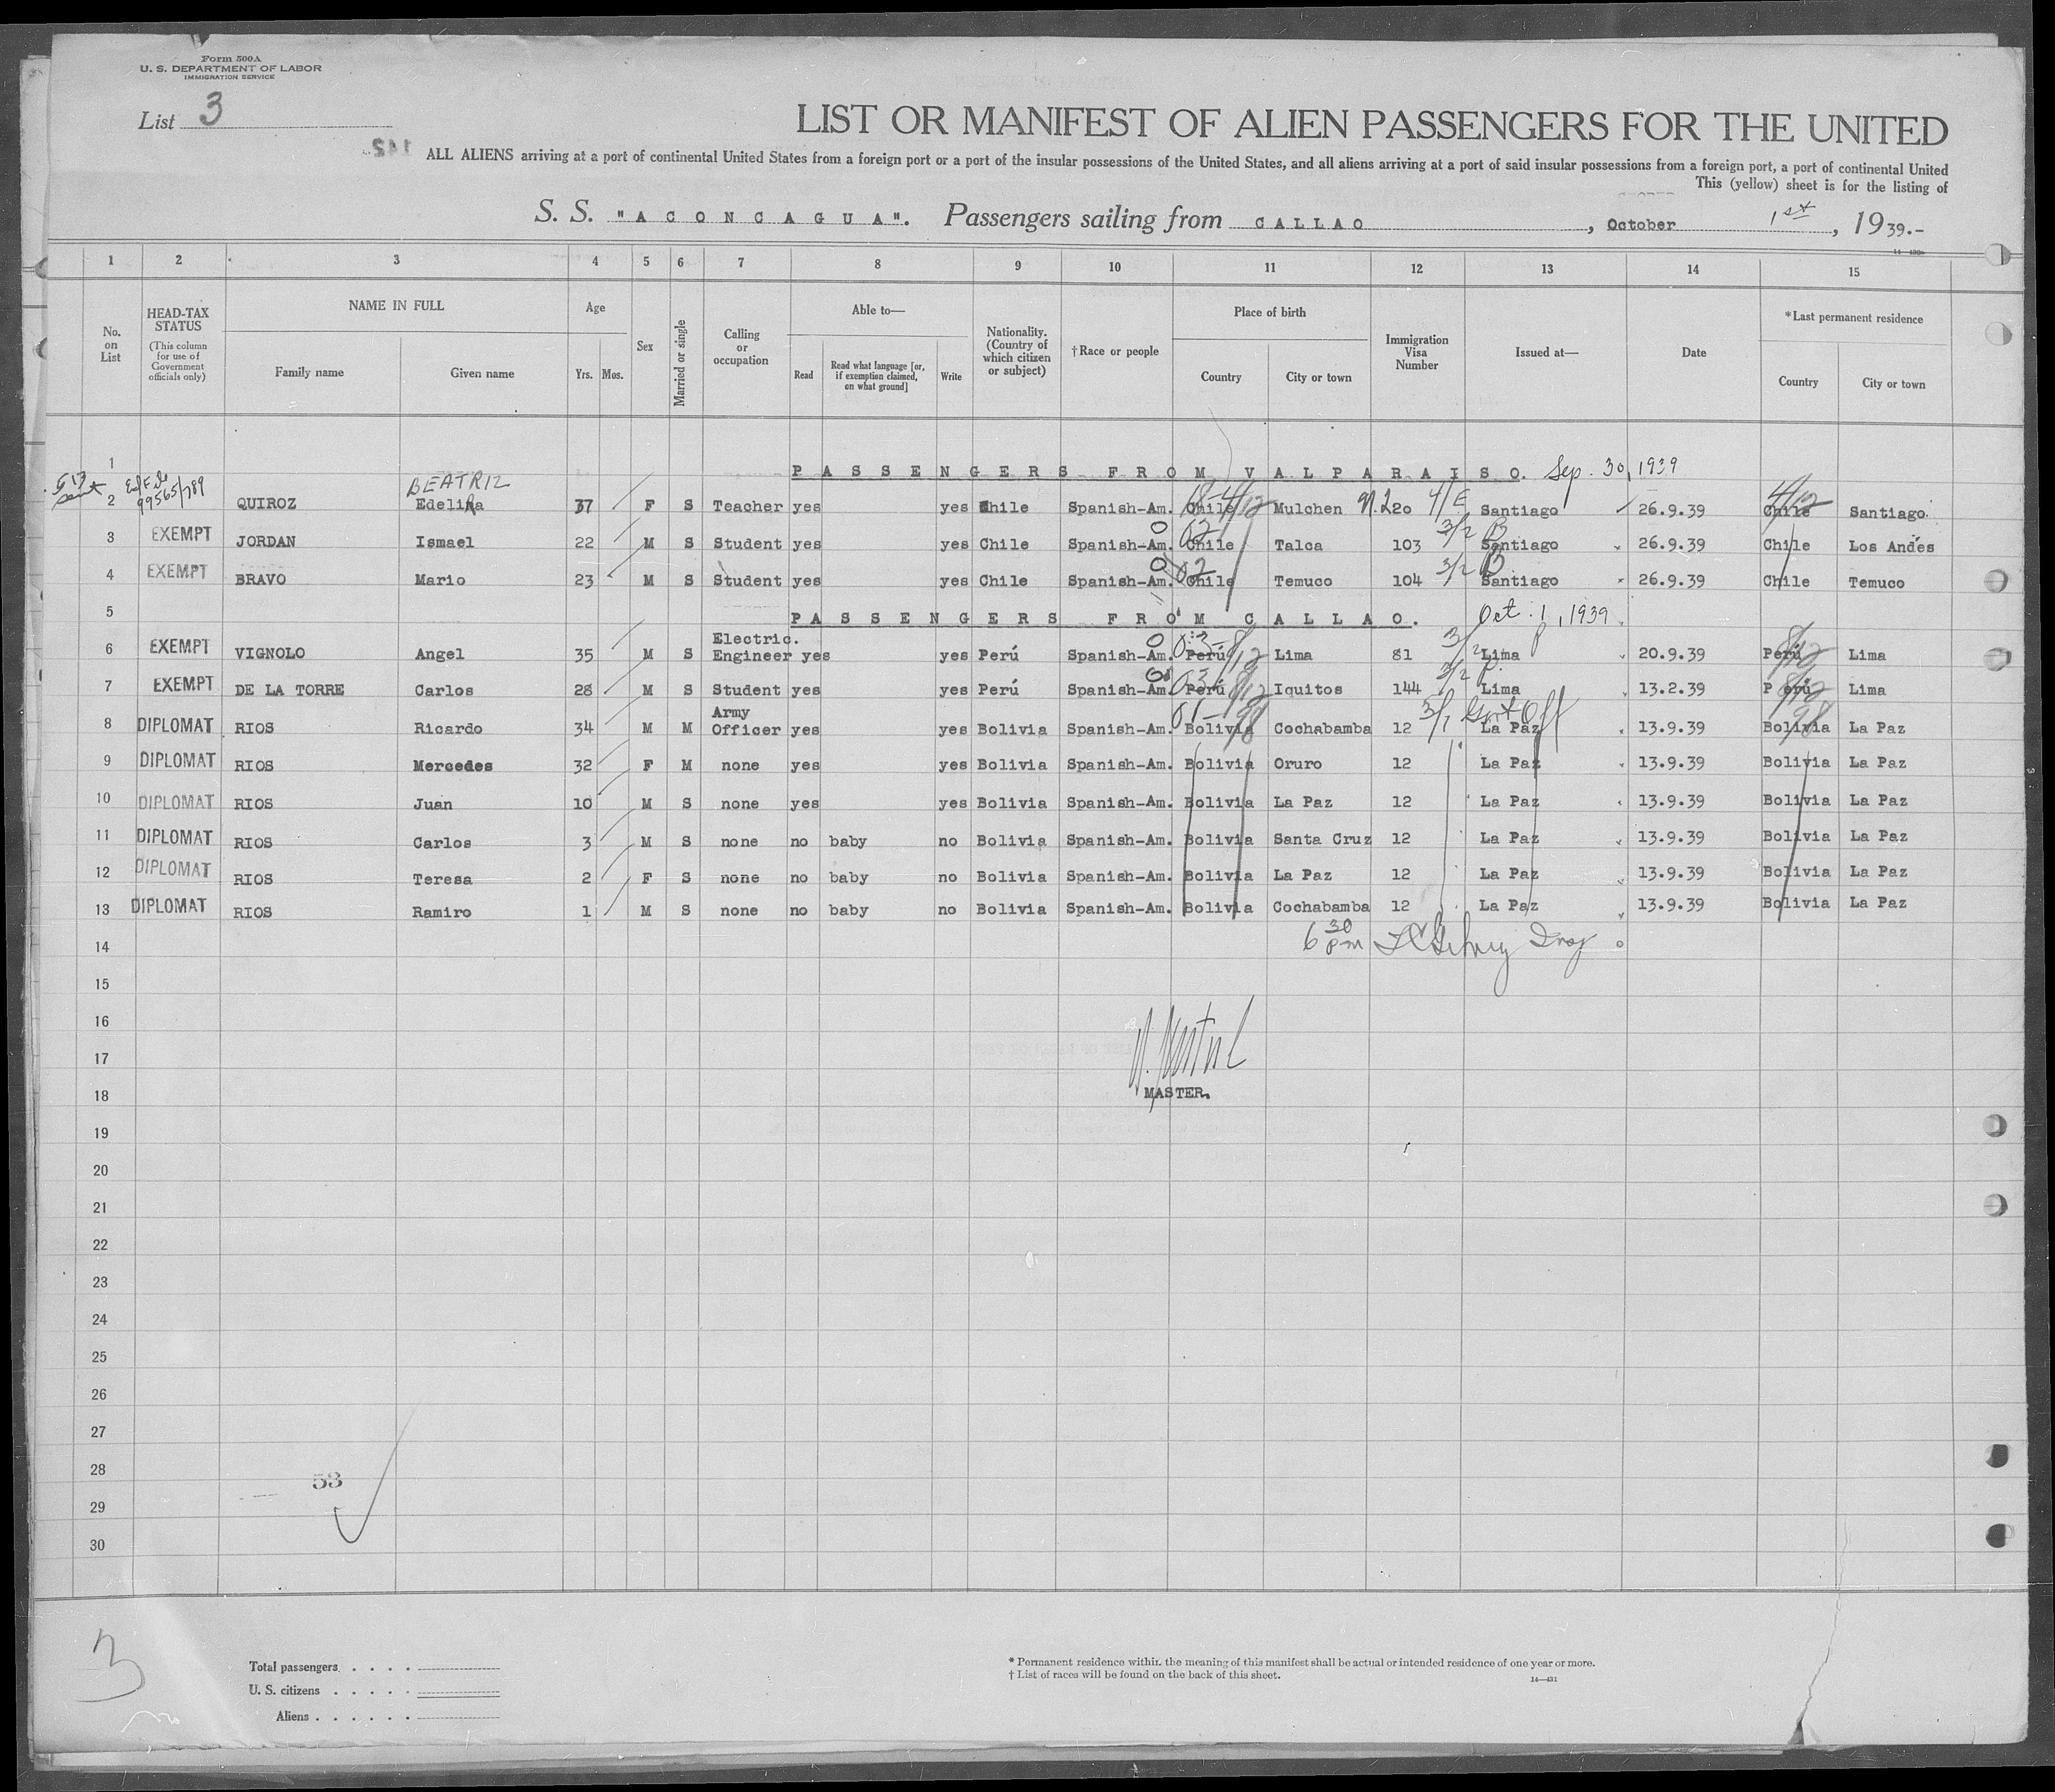 Form 500A
U. S. DEPARTMENT OF LABOR
IMMIGRATION SERVICE
List 3
LIST OR MANIFEST OF ALIEN PASSENGERS FOR THE UNITED
ALL ALIENS arriving at a port of continental United States from a foreign port or a port of the insular possessions of the United States, and all aliens arriving at a port of said insular possessions from a foreign port, a port of continental United
This (yellow) sheet is for the listing of
S. S. "ACONCAGUA". Passengers sailing from CALLAO, October 1st, 1939.-
1 2 3 4 5 6 7 8 9 10 11 12 13 14 15
No. on List
HEAD-TAX STATUS (This column for use of Government officials only)
NAME IN FULL
Family name Given name
Age
Yrs. Mos.
Sex
Married or single
Calling or occupation
Able to—
Read
Read what language [or, if exemption claimed, on what ground]
Write
Nationality. (Country of which citizen or subject)
†Race or people
Place of birth
Country City or town
Immigration Visa Number
Issued at—
Date
*Last permanent residence
Country City or town
1 PASSENGERS FROM VALPARAISO. Sep. 30, 1939
BEATRIZ
2 99565/789 QUIROZ Edelira 37 F S Teacher yes yes Chile Spanish-Am. Chile 4/12 Mulchen 20 Santiago 26.9.39 Chile 4/12 Santiago
3 EXEMPT JORDAN Ismael 22 M S Student yes yes Chile Spanish-Am. Chile Talca 103 3/2 B Santiago 26.9.39 Chile Los Andes
4 EXEMPT BRAVO Mario 23 M S Student yes yes Chile Spanish-Am. Chile Temuco 104 3/2 B Santiago 26.9.39 Chile Temuco
5 PASSENGERS FROM CALLAO. Oct. 1, 1939
6 EXEMPT VIGNOLO Angel 35 M S Electric. Engineer yes yes Perú Spanish-Am. Perú 8/12 Lima 81 3/2 P Lima 20.9.39 Perú 8/12 Lima
7 EXEMPT DE LA TORRE Carlos 28 M S Student yes yes Perú Spanish-Am. Perú 8/12 Iquitos 144 3/2 P. Lima 13.2.39 Perú 8/12 Lima
8 DIPLOMAT RIOS Ricardo 34 M M Army Officer yes yes Bolivia Spanish-Am. Bolivia 01-98 Cochabamba 12 3/1 Govt Off La Paz 13.9.39 Bolivia 98 La Paz
9 DIPLOMAT RIOS Mercedes 32 F M none yes yes Bolivia Spanish-Am. Bolivia Oruro 12 La Paz 13.9.39 Bolivia La Paz
10 DIPLOMAT RIOS Juan 10 M S none yes yes Bolivia Spanish-Am. Bolivia La Paz 12 La Paz 13.9.39 Bolivia La Paz
11 DIPLOMAT RIOS Carlos 3 M S none no baby no Bolivia Spanish-Am. Bolivia Santa Cruz 12 La Paz 13.9.39 Bolivia La Paz
12 DIPLOMAT RIOS Teresa 2 F S none no baby no Bolivia Spanish-Am. Bolivia La Paz 12 La Paz 13.9.39 Bolivia La Paz
13 DIPLOMAT RIOS Ramiro 1 M S none no baby no Bolivia Spanish-Am. Bolivia Cochabamba 12 La Paz 13.9.39 Bolivia La Paz
14 6 30 pm Insp
15
16
17
18 MASTER.
19
20
21
22
23
24
25
26
27
28 53
29
30
3
Total passengers
U. S. citizens
Aliens
* Permanent residence within the meaning of this manifest shall be actual or intended residence of one year or more.
† List of races will be found on the back of this sheet.
14—431